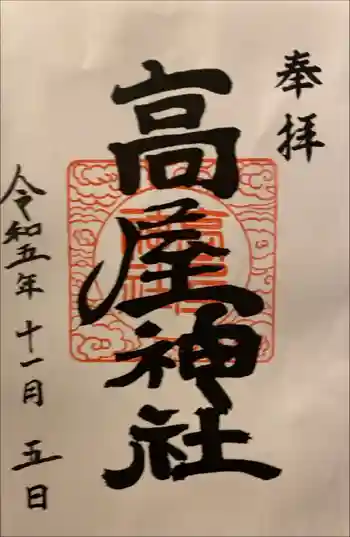 奉拝
高屋神社
令和五年十一月五日